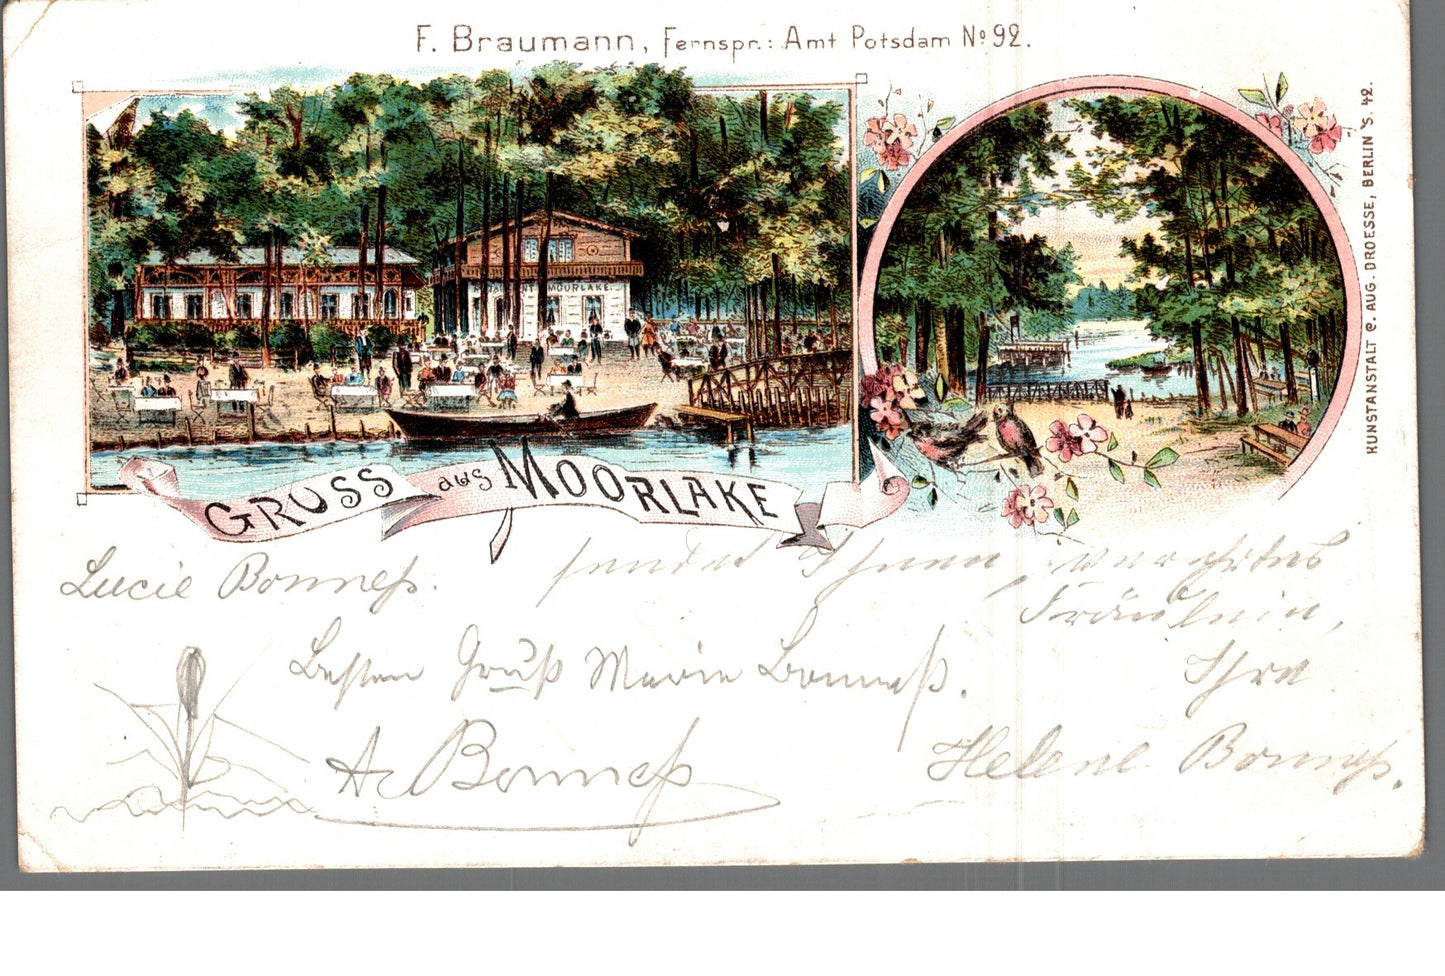 F. Braumann, Fernspr.: Amt Potsdam No 92.
KUNSTANSTALT C. AUG. DROESSE, BERLIN S. 42.
MOORLAKE.
GRUSS aus MOORLAKE
Lucie Bonneß. sendet Ihnen, verehrtes
Fräulein,
Besten Gruß Marie Bonneß.
Ihre
A. Bonneß
Helene Bonneß.